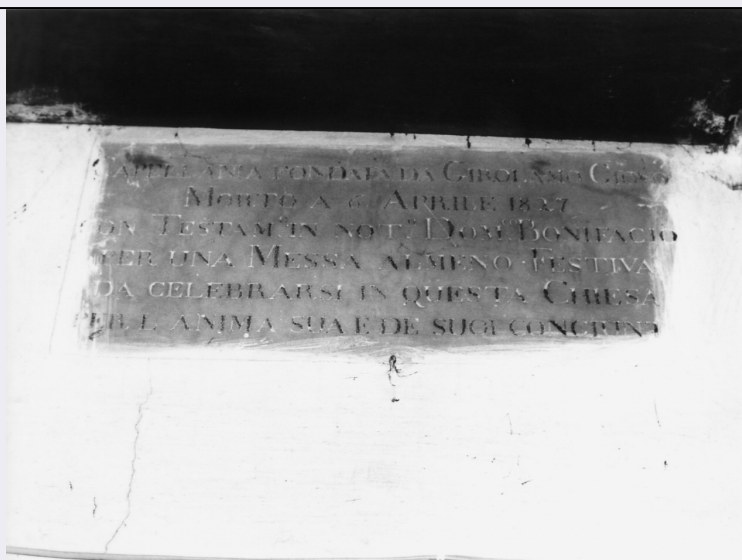 CAPELLANIA FONDATA DA GIROLAMO
MORTO A 6 APRILE 1827
CON TESTAM.º IN NOT.º DOM.º BONIFACIO
PER UNA MESSA ALMENO FESTIVA
DA CELEBRARSI IN QUESTA CHIESA
PER L ANIMA SUA E DE SUOI CONGIUNTI